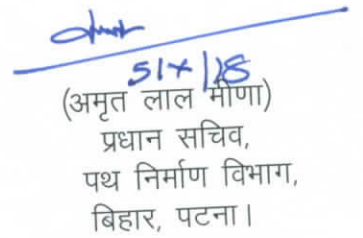 5/x/18
(अमृत लाल मीणा)
प्रधान सचिव,
पथ निर्माण विभाग,
बिहार, पटना।